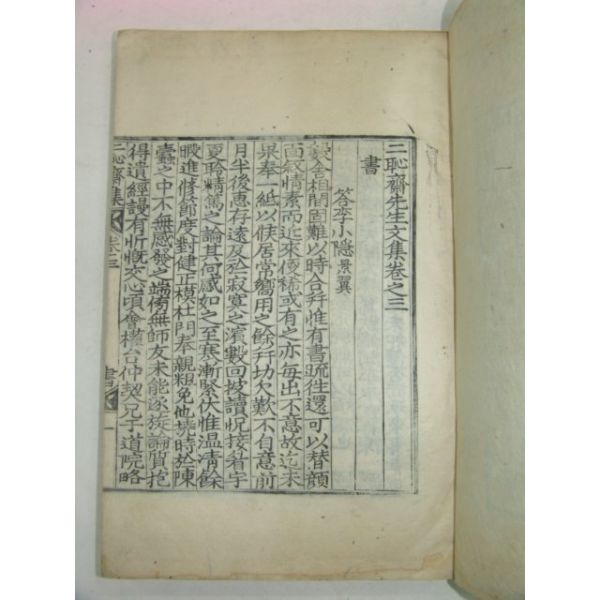 二恥齋先生文集卷之三
書
答李小隱景翼
數舍相間固難以時合幷惟有書疏往還可以替顔
面叙情素而近來便稀或有之亦每出不意故迄未
果奉一紙以候居常嚮用之餘幷切欠歎不自意前
月半後惠存遠及於寂寞之濱數回披讀怳接眉宇
夏聆精篤之論其何感如之至寒漸緊伏惟溫凊餘
暇進修節度對健正模杜門奉親粗免他撓時於陳
蠹之中不無感發之端傍無師友未能逐旋論質抱
得遺經謾有忻慨交心頃會權台仲契兄于道院略
二恥齋集 卷三 書 一